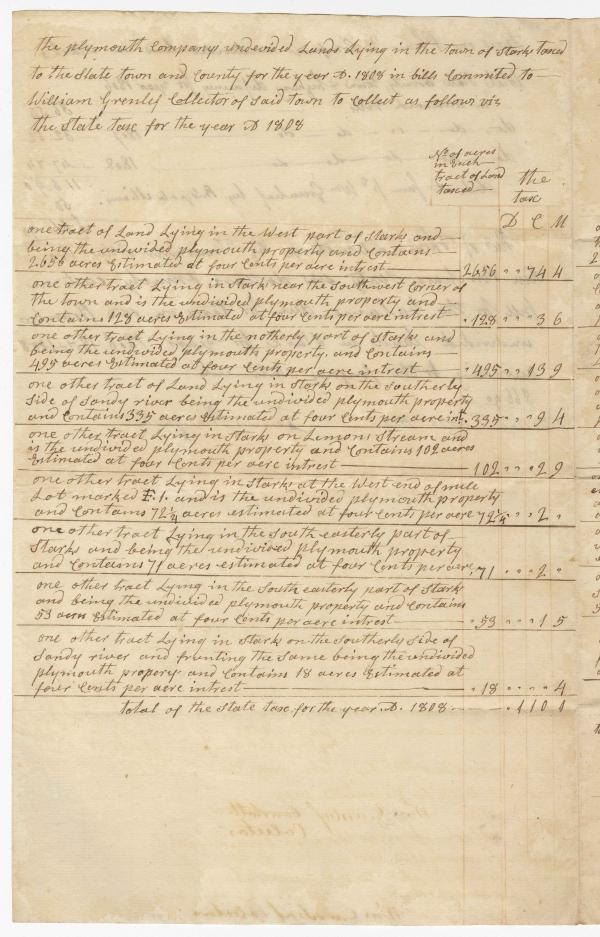 the plymouth Company undevided Lands Lying in the town of Starks taxed
to the State town and County for the year D. 1808 in bills Commited to
William Grenlef Collector of said town to Collect as follows viz
the State tax for the year D 1808
No. of acres in Each tract of Land taxed
the tax
D C M
one tract of Land Lying in the West part of Starks and
being the undivided plymouth property and Contains
2656 acres Estimated at four Cents per acre intrest 2656 " " 74 4
one other tract Lying in Stark near the Southwest Corner of
the town and is the undivided plymouth property and
Contains 128 acres Estimated at four Cents per acre intrest 128 " " " 3 6
one other tract Lying in the notherly part of Starks and
being the undivided plymouth property and Contains
495 acres Estimated at four Cents per acre intrest 495 " " 13 9
one other tract of Land Lying in Stark on the Southerly
Side of Sandy river being the undivided plymouth property
and Contains 335 acres Estimated at four Cents per acre int. 335 " " " 9 4
one other tract Lying in Starks on Lemons Stream and
is the undivided plymouth property and Contains 102 acres
Estimated at four Cents per acre intrest 102 " " " 2 9
one other tract Lying in Starks at the West end of mile
Lot marked F. 1. and is the undivided plymouth property
and Contains 72 1/4 acres estimated at four Cents per acre 72 1/4 " " 2 "
one other tract Lying in the South easterly part of
Starks and being the undivided plymouth property
and Contains 71 acres estimated at four Cents per acre 71 " " " 2 "
one other tract Lying in the South easterly part of Stark
and being the undivided plymouth property and Contains
53 acres Estimated at four Cents per acre intrest 53 " " " 1 5
one other tract Lying in Stark on the Southerly Side of
Sandy river and frunting the Same being the undivided
plymouth propery and Contains 18 acres Estimated at
four Cents per acre intrest 18 " " " " 4
total of the State tax for the year D. 1808 " 1 10 1